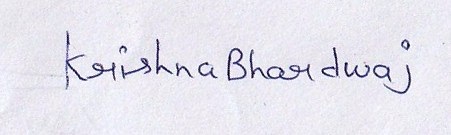 Krishna Bhardwaj